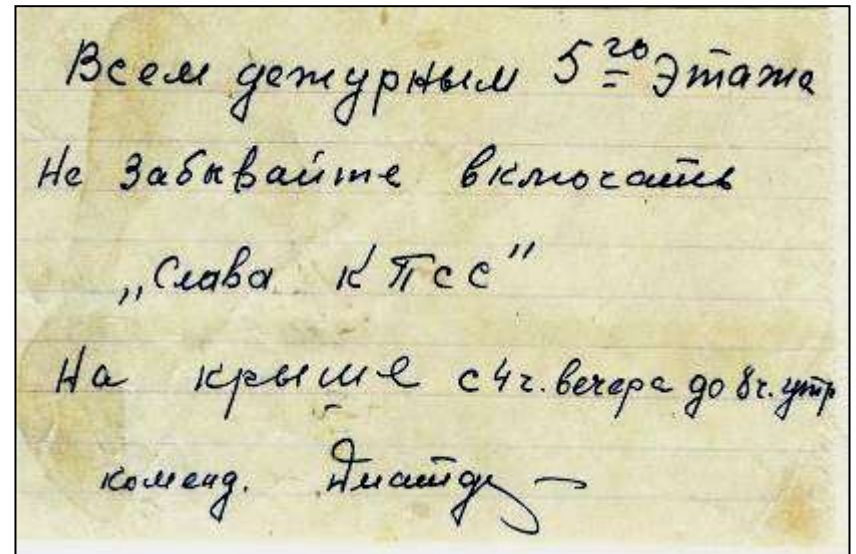 Всем дежурным 5го этажа
Не забывайте включать
„Слава КПСС"
На крыше с 4 ч. вечера до 8 ч. утр
коменд.